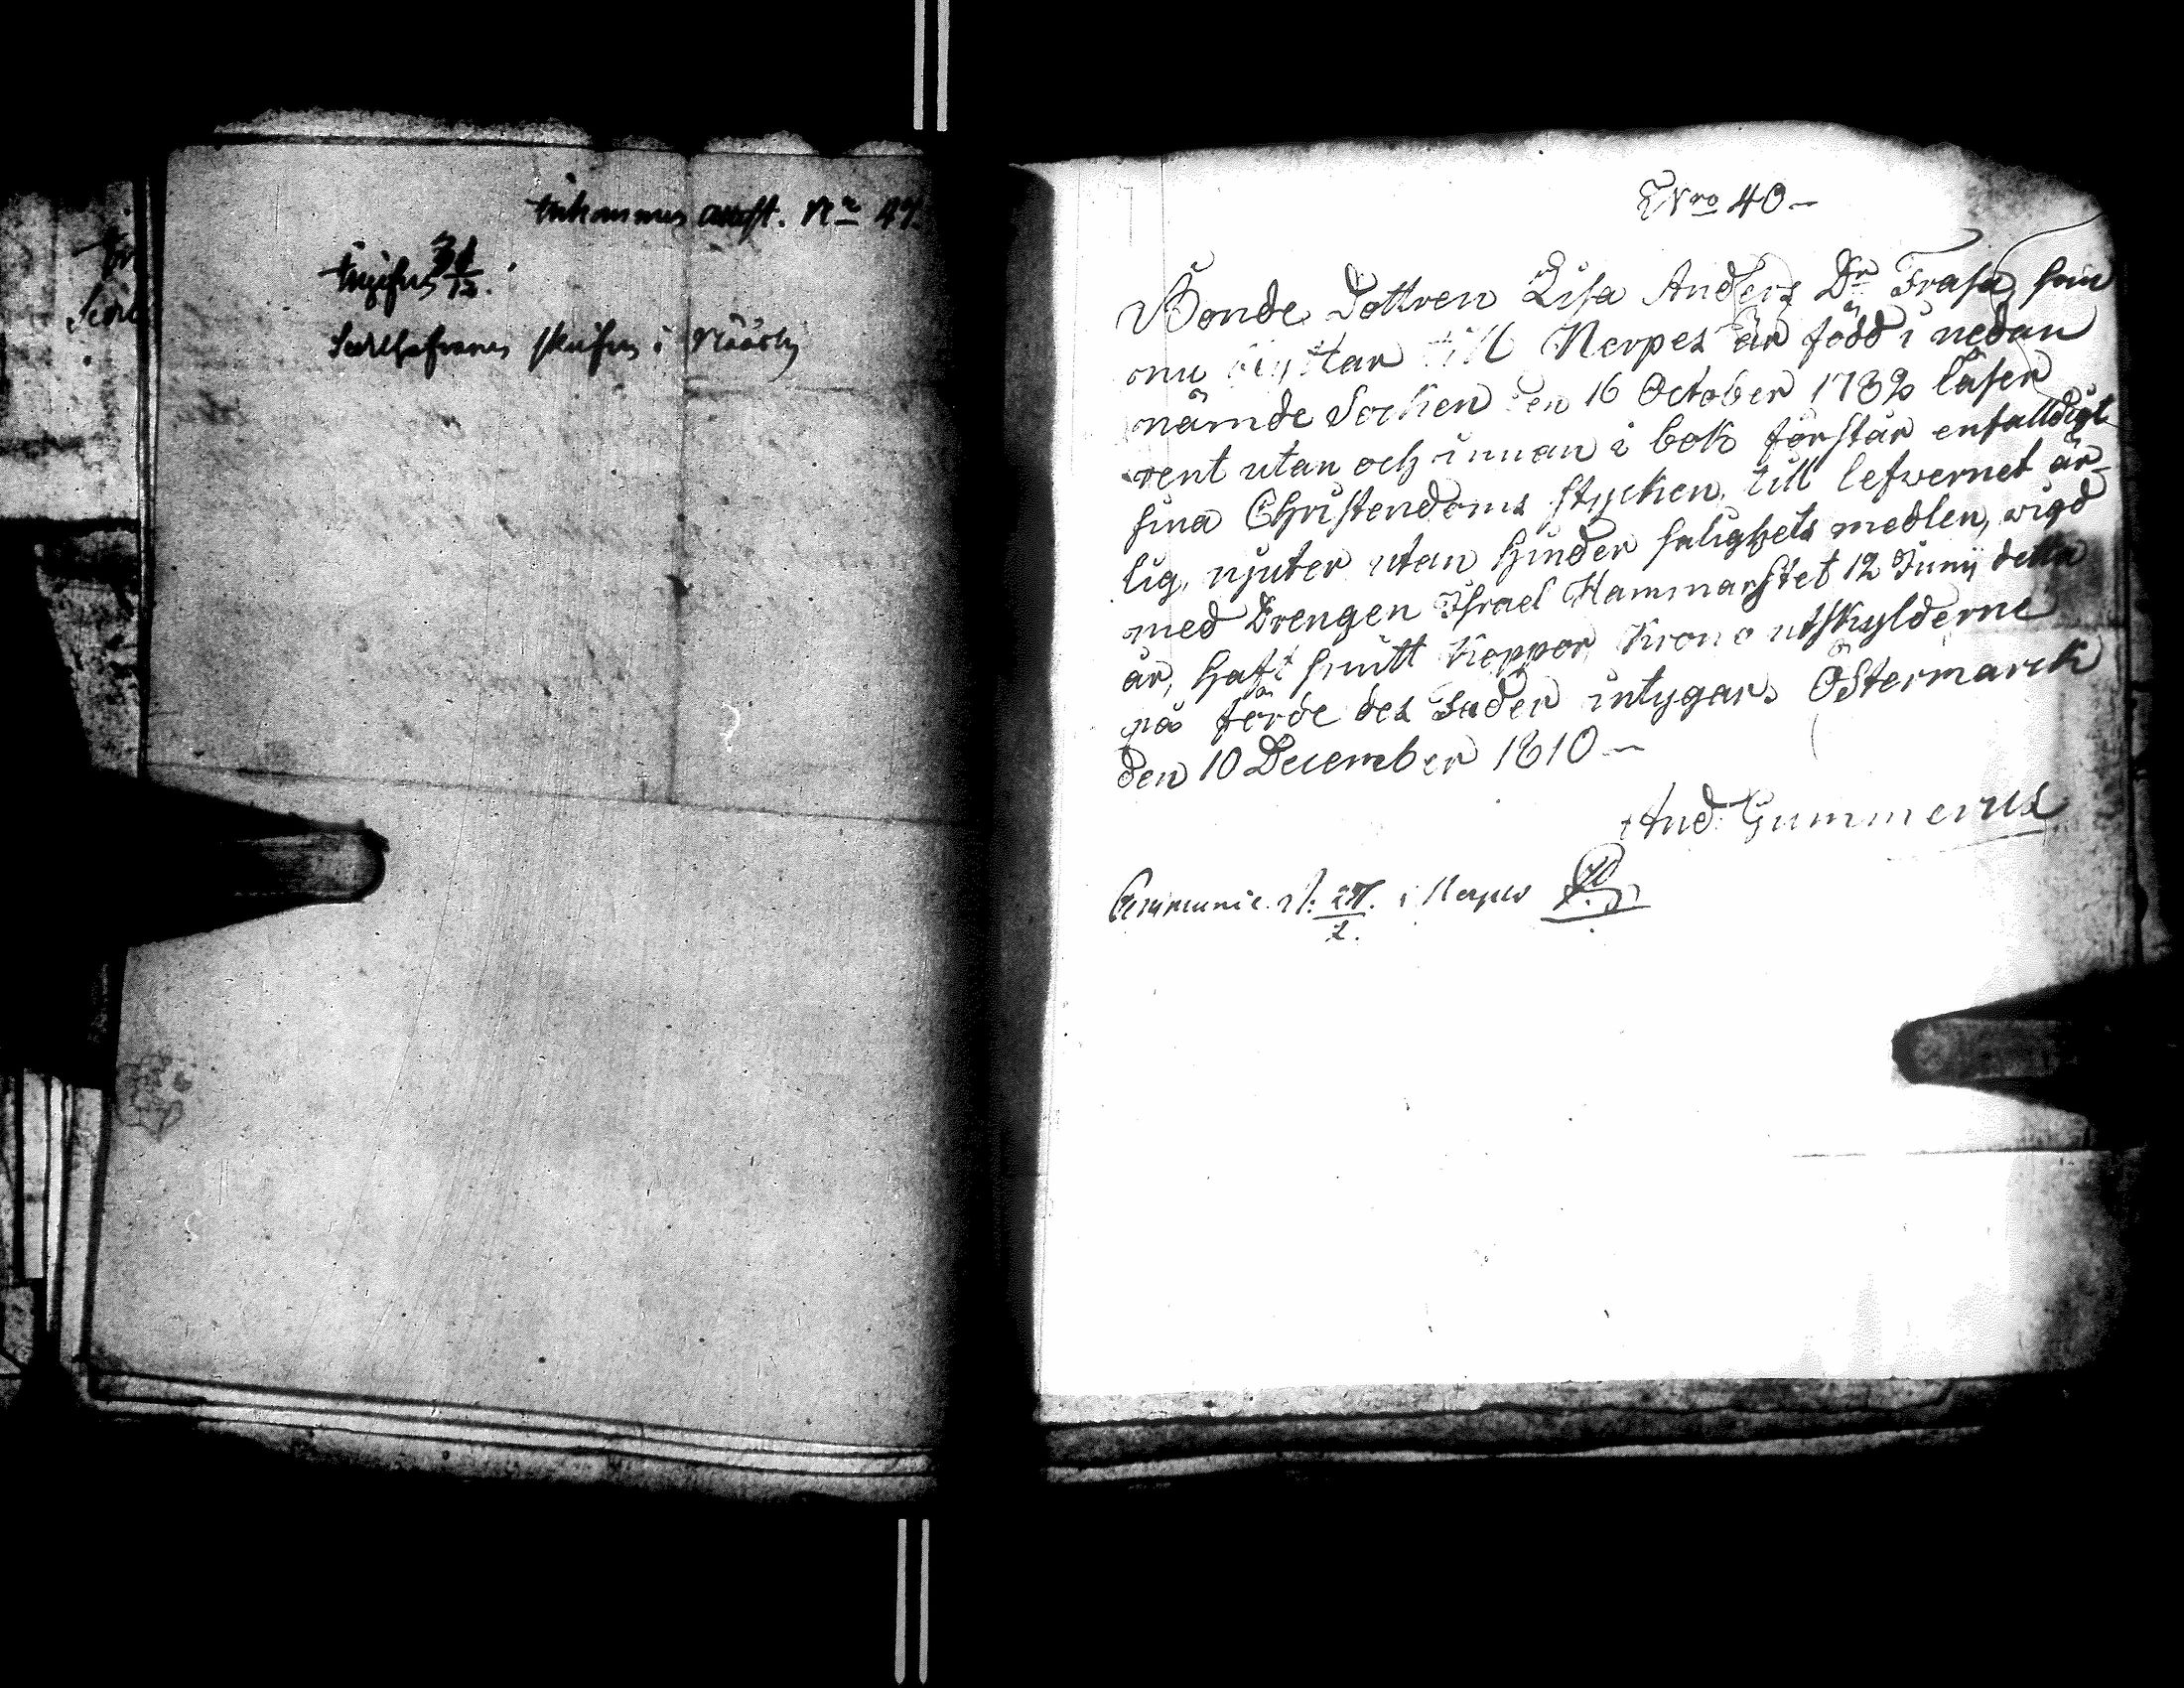 inkommen attest. Nro 47.
ingifven 31/12.
Sedelhafvaren skrifven i Nääsby
Nro 40
Bonde Dottren Lisa Anders Dr Frasa, som
nu flyttar till Nerpes är född i nedan
nämde Socken den 16 October 1782 läser
rent utan och innan i bok förstår enfalldigt
sina Christendoms stycken, till lefvernet är
lig, njuter utan hinder salighets medlen, wigd
med Drengen Israel Hammarstet 12 Junij detta
år, haft hwitt koppor, Krono utskylderne
på förde des Fader intygar. Östermarck
den 10 December 1810
And: Gummerus
Communic. d. 24/2. i Nerpes